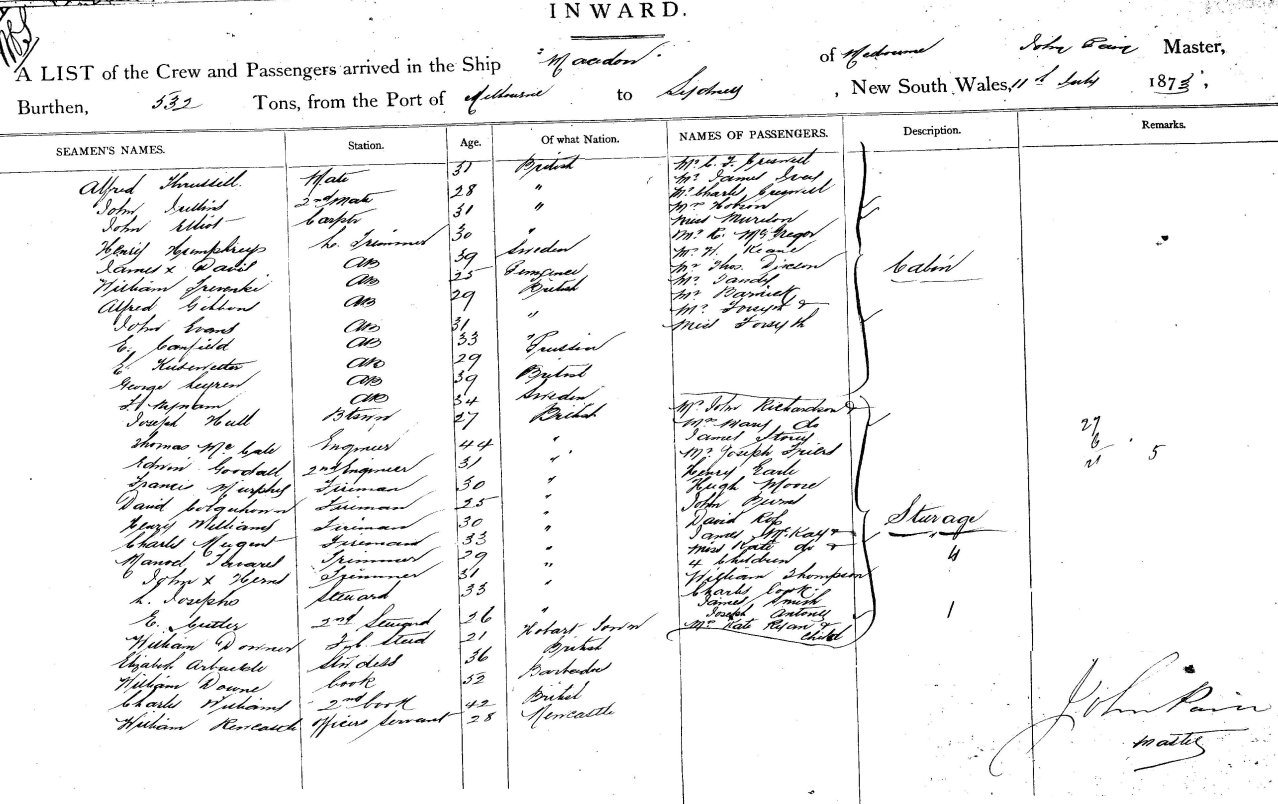 INWARD.
A LIST of the Crew and Passengers arrived in the Ship "Macedon" of Melbourne John Pain Master,
Burthen, 532 Tons, from the Port of Melbourne to Sydney, New South Wales, 11th July 1873,
SEAMEN'S NAMES. Station. Age. Of what Nation. NAMES OF PASSENGERS. Description. Remarks.
Alfred Thrussell Mate 31 British Mr C. F. Creswell
John 2nd Mate 28 " Mr James
John Elliot Carptr 31 " Mr Charles Creswell
Henry Humphreys Trimmer 30 " Mrs Hobson
James x David AB 39 Sweden Miss
William AB 25 Penzance Mr R. McGregor
Alfred Gibbons AB 29 British Mr H. Keane
John Evans AB 31 " Mr Thos. Dickson
E. Canfield AB 33 " Mr Tandy
E. AB 29 Prussia Mr Barnick
George AB 39 British Mr Forsyth &
AB 34 Sweden Miss Forsyth
Cabin
Joseph Hull Btswn 27 British Mr John Richardson &
Thomas McCabe Engineer 44 " Mrs Mary do
Edwin Goodall 2nd Engineer 31 " James Storey
Francis Murphy Fireman 30 " Mr Joseph
David Colquhoun Fireman 25 " Henry Earle
Henry Williams Fireman 30 " Hugh Moore
Charles Nugent Fireman 33 " John Burns
Manoel Tavares Trimmer 29 " David Ross
John x Trimmer 31 " James McKay &
L. Josephs Steward 33 Miss Kate do &
E. Cutler 2nd Steward 26 " 4 Children
William Downer F.C. Stewd 21 Hobart Town William Thompson
Elizabeth Arbuckle Stwdess 36 British Charles Cook
William Downe Cook 53 Barbadoes James Smith
Charles Williams 2nd Cook 42 British Joseph Antony
William Officers Servant 28 Newcastle Mrs Kate Ryan &
Child
Sturage
4
1
27
6
21 5
John Pain
Master